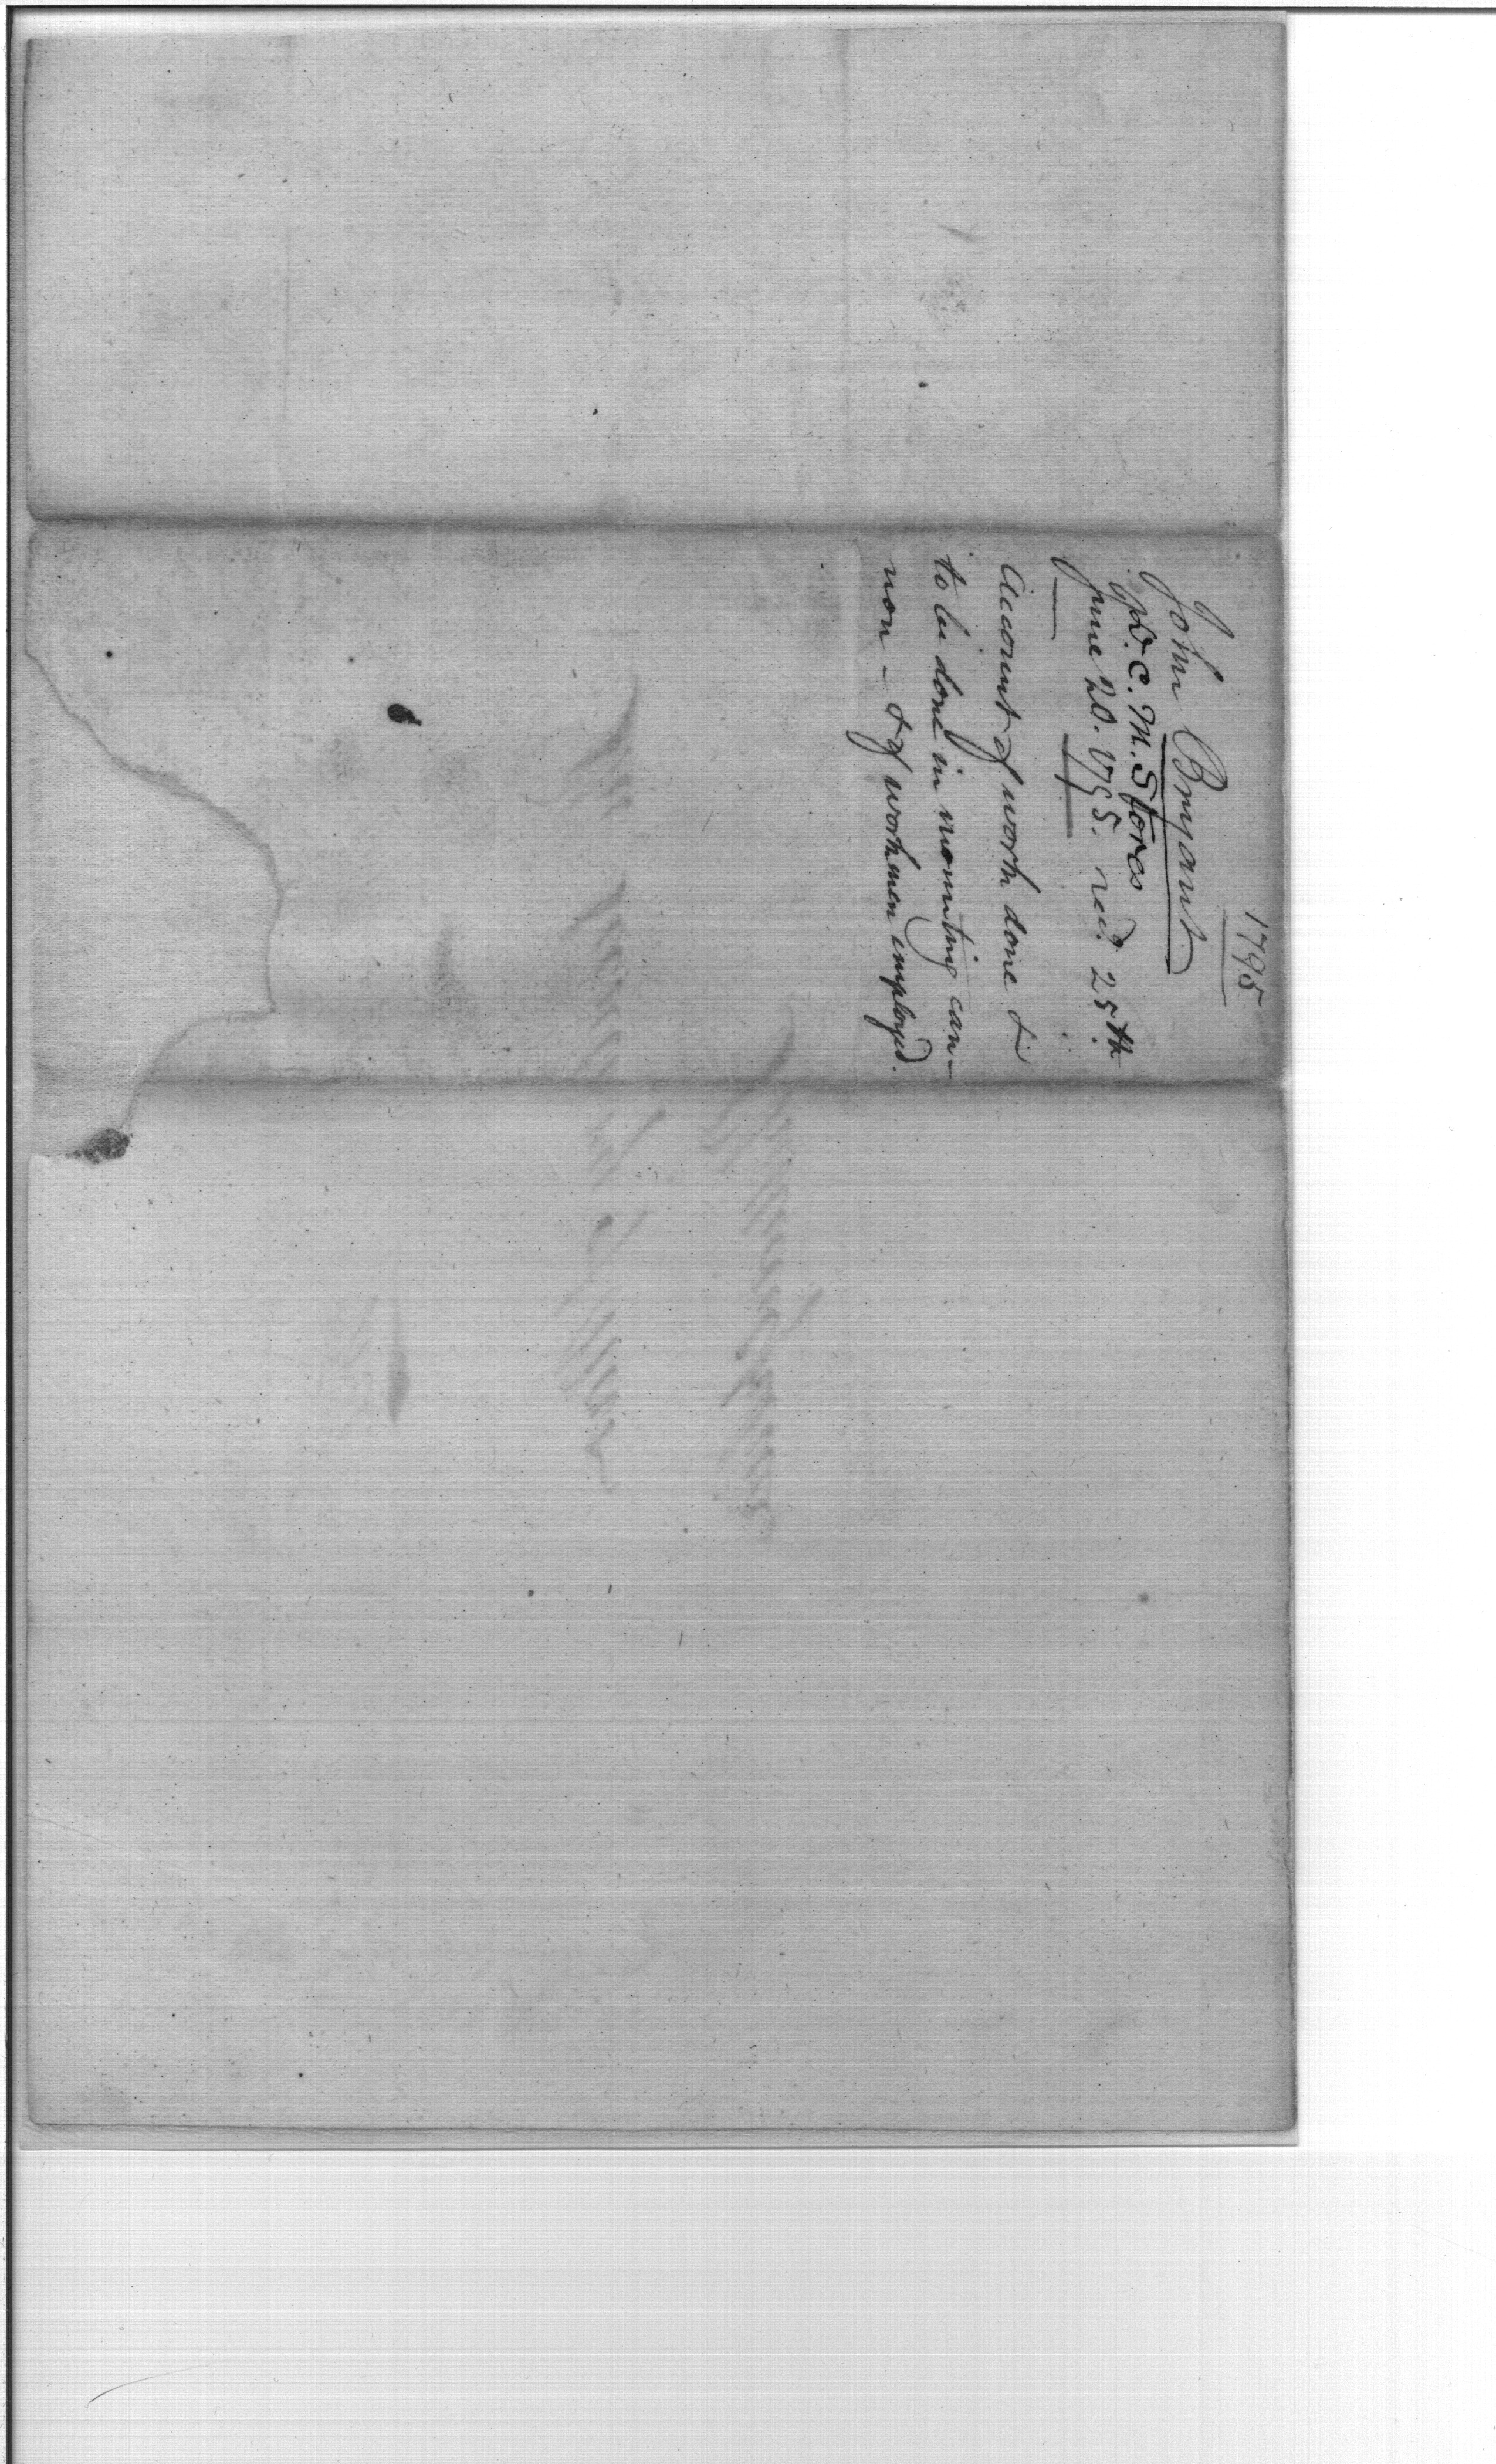 1795
John Bryant
D. C. M. Stores
June 20. 1795. recd. 25th.
Account of work done &
to be done in mounting can-
non - & of workmen employed.